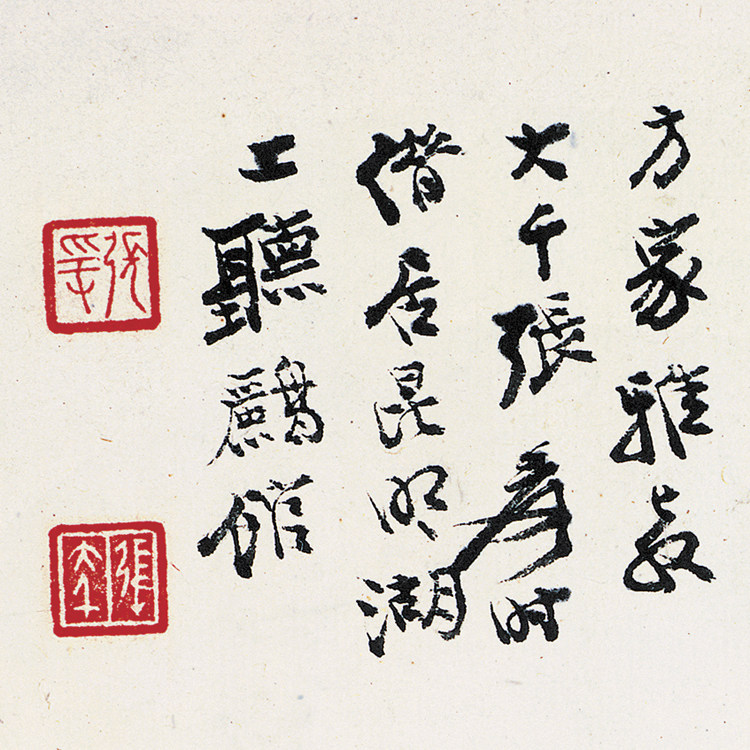 方家雅教
大千張爰时
借居昆明湖
上聽鸝館
張爰
張大千